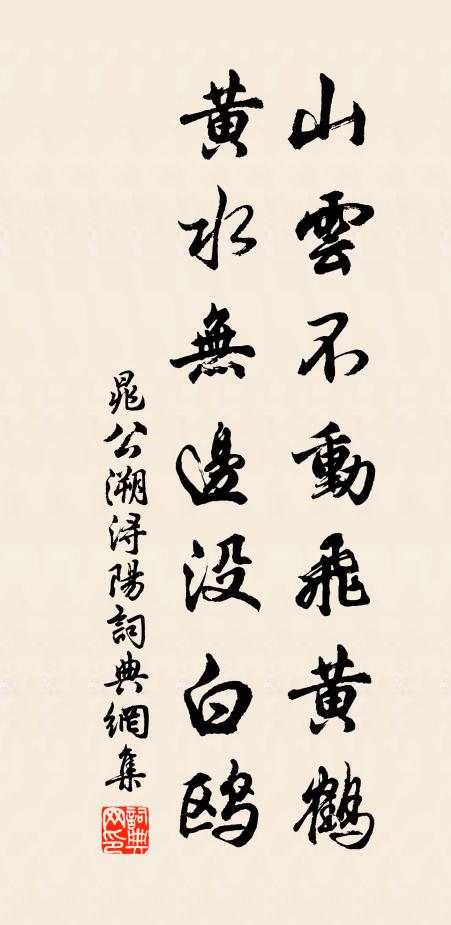 山雲不動飛黄鶴
黄水無邊没白鸥
晁公溯浔陽詞典網集
詞典网印